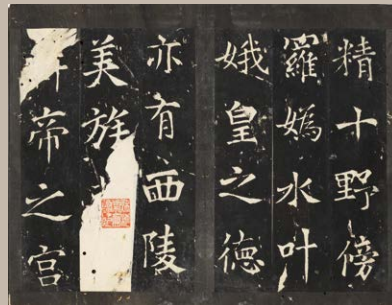 精十野傍
羅嫣水叶
娥皇之德
亦有西陵
美旌
帝之宫